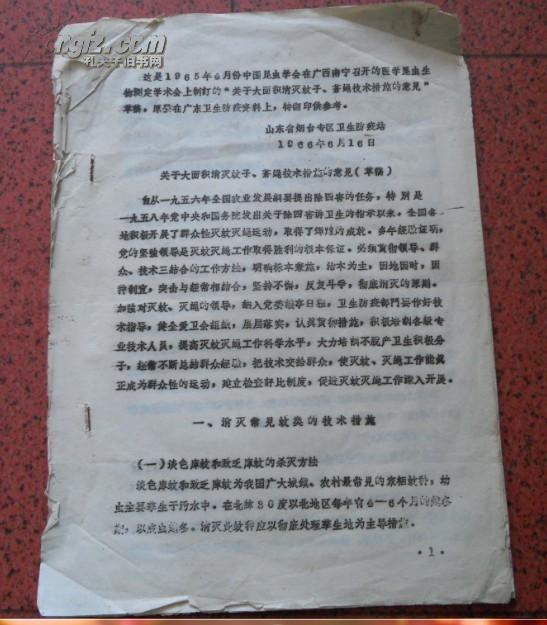 gjz.com
孔夫子旧书网
这是1965年6月份中国昆虫学会在广西南宁召开的医学昆虫生
物测定学术会上制订的“关于大面积消灭蚊子、苍蝇技术措施的意见”
草稿。原登在广东卫生防疫资料上,特翻印供参考。
山东省烟台专区卫生防疫站
1966年6月16日
关于大面积消灭蚊子、苍蝇技术措施的意见(草稿)
自从一九五六年全国农业发展纲要提出除四害的任务,特别是
一九五八年党中央和国务院发出关于除四害讲卫生的指示以来,全国各
地积极开展了群众性灭蚊灭蝇运动,取得了辉煌的成效。多年经验证明,
党的坚强领导是灭蚊灭蝇工作取得胜利的根本保证。必须贯彻领导、群
众、技术三结合的工作方法,明确标本兼施,治本为主,因地因时,因
行制宜,突击与经常相结合,坚持不懈,反复斗争,彻底消灭的原则。
加强对灭蚊、灭蝇的领导,纳入党委议事日程,卫生防疫部门要作好技
术指导,健全爱卫会组织,层层落实,认真贯彻措施,积极培训各级专
业技术人员,提高灭蚊灭蝇工作科学水平,大力培训不脱产卫生积极分
子,经常不断总结群众经验,把技术交给群众,使灭蚊、灭蝇工作能真
正成为群众性的运动,建立检查评比制度,促进灭蚊灭蝇工作深入开展。
一、消灭常见蚊类的技术措施
(一)淡色库蚊和致乏库蚊的杀灭方法
淡色库蚊和致乏库蚊为我国广大城镇、农村最常见的家栖蚊种,幼
虫主要孳生于污水中。在北纬30度以北地区每年有
以成虫越冬。消灭此蚊种应以彻底处理孳生地为主导措施。
·1·